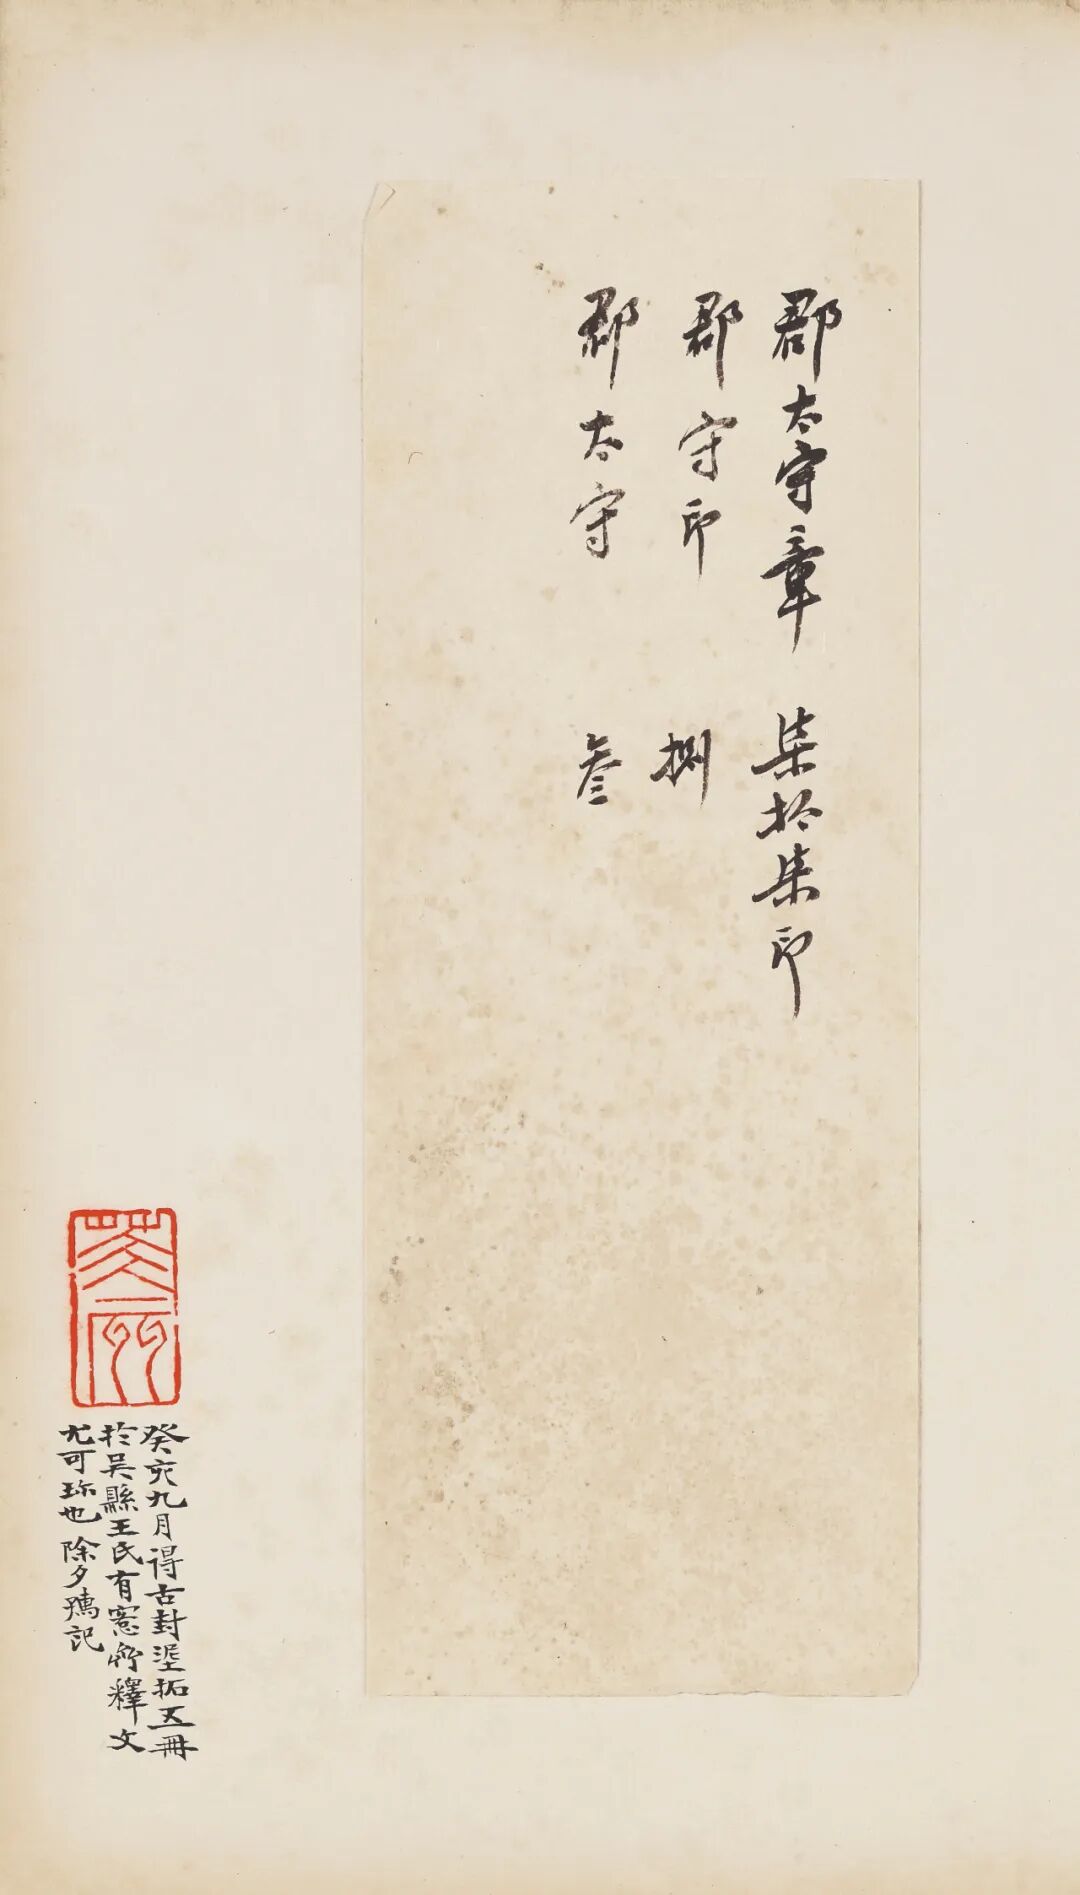 郡太守章 柒拾柒印
郡守印 捌
郡太守 叁
癸亥九月得古封埿拓五冊
扵吳縣王氏有愙齋釋文
尤可珎也 除夕記